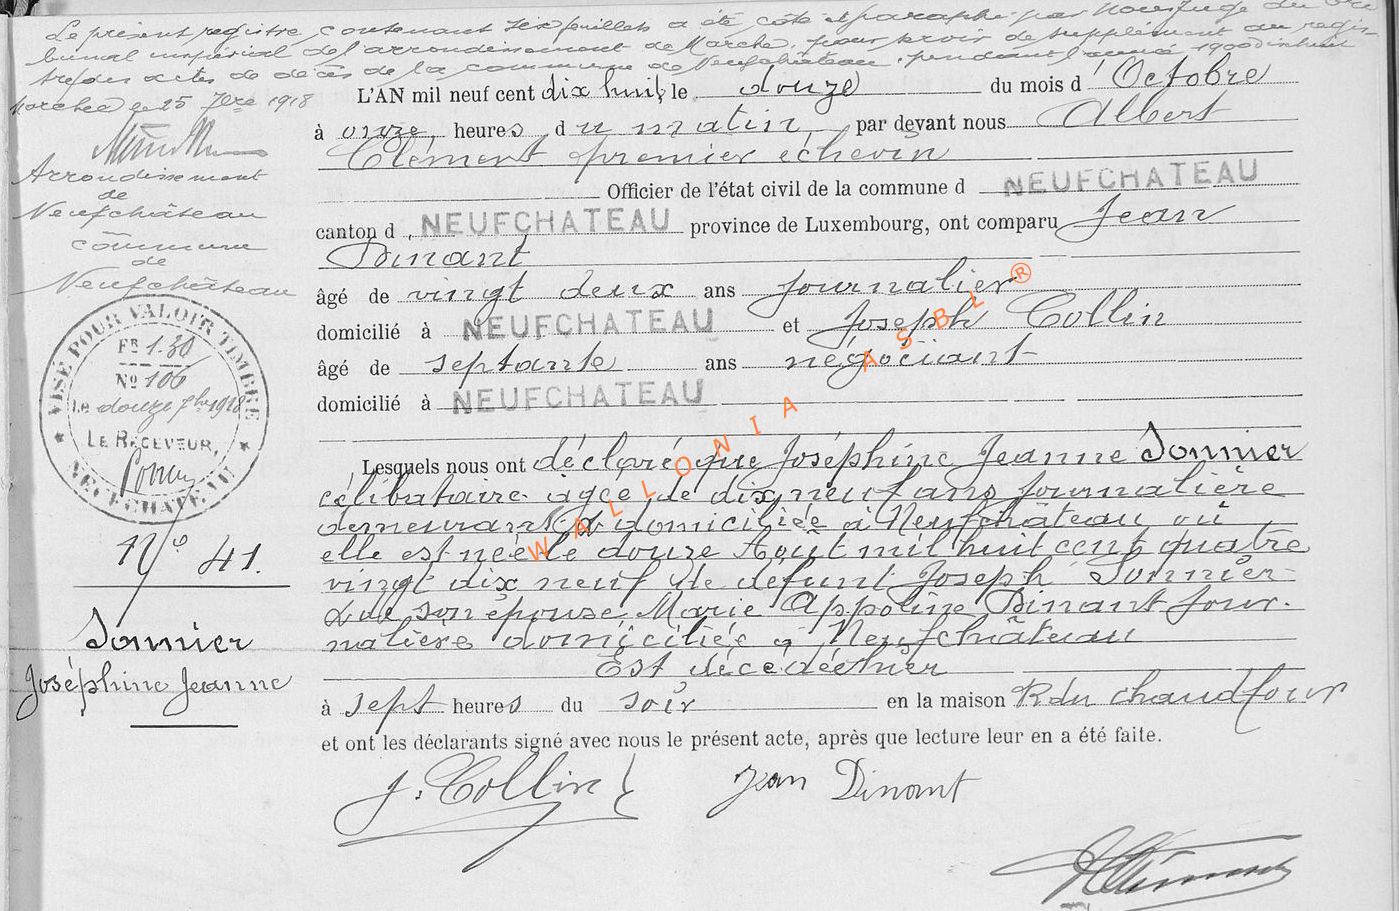 Le présent registre contenant six feuillets a été coté et paraphé par Nous Juge du tri
bunal impérial de l'arrondissement de Marche, pour servir de supplément au regis-
tre des actes de décès de la commune de Neufchâteau, pendant l'année 1900 dix huit
Marche le 25 7bre 1918
Arrondissement
de
Neufchâteau
commune
de
Neufchâteau
VISÉ POUR VALOIR TIMBRE
FR 1.30
No 106
Le douze 1918
LE RECEVEUR,
NEUFCHATEAU
No 41.
Sonnier
Joséphine Jeanne
L'AN mil neuf cent dix huit, le douze du mois d' Octobre
à onze, heures du matin, par devant nous Albert
Clément premier échevin
Officier de l'état civil de la commune d NEUFCHATEAU
canton d NEUFCHATEAU province de Luxembourg, ont comparu Jean
Dinant
âgé de vingt deux ans journalier
domicilié à NEUFCHATEAU et Joseph Collin
âgé de septante ans négociant
domicilié à NEUFCHATEAU
Lesquels nous ont déclaré que Joséphine Jeanne Sonnier
célibataire âgée de dix neuf ans journalière
demeurant & domiciliée à Neufchâteau où
elle est née le douze Août mil huit cent quatre
vingt dix neuf de défunt Joseph Sonnier
& de son épouse Marie Appoline Dinant jour-
nalière domiciliée à Neufchâteau
Est décédée hier
à sept heures du soir en la maison R. du chaudfour
et ont les déclarants signé avec nous le présent acte, après que lecture leur en a été faite.
J. Collin Jean Dinant
AClément
WALLONIA ASBL®